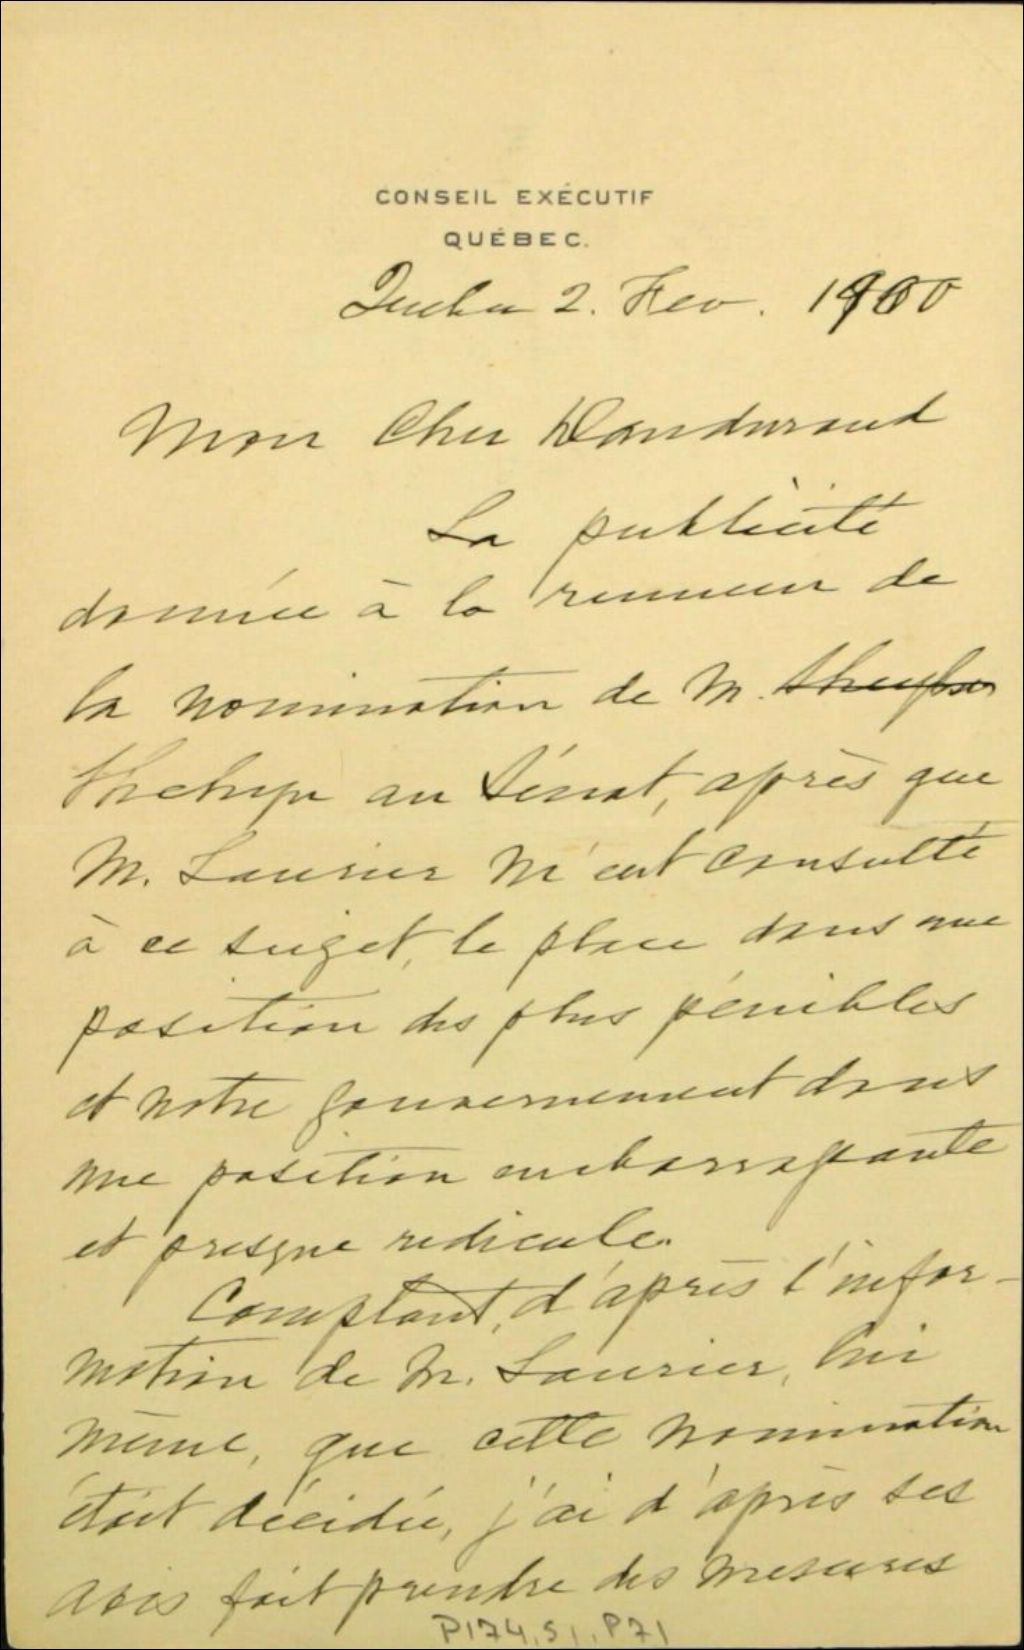 CONSEIL EXÉCUTIF
QUÉBEC.
Québec 2. Fev. 1900
Mon Cher Dandurand
La publicité
donnée à la rumeur de
la nomination de M.
Shehyn au Sénat, après que
M. Laurier m'eut consulté
à ce sujet, le place dans une
position des plus pénibles
et notre gouvernement dans
une position embarrassante
et presque ridicule.
Comptant, d'après l'infor-
mation de M. Laurier, lui
même, que cette nomination
était décidée, j'ai d'après ses
avis fait prendre des mesures
P174,S1,P71